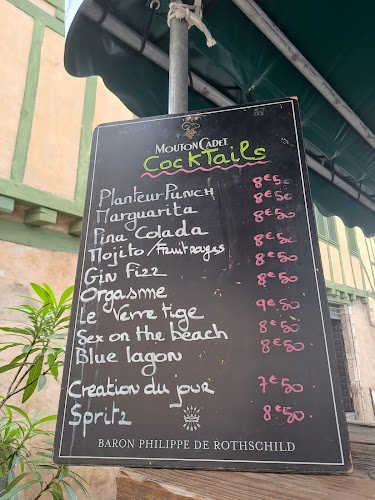 Mouton Cadet
Cocktails
Planteur Punch 8€50
Marguarita 8€50
Pina Colada 8€50
Mojito / Fruit rouges 8€50
Gin Fizz 8€50
Orgasme 9€50
Le Verre tige 8€50
Sex on the beach 8€50
Blue lagon
Création du jour 7€50
Spritz 8€50
BARON PHILIPPE DE ROTHSCHILD